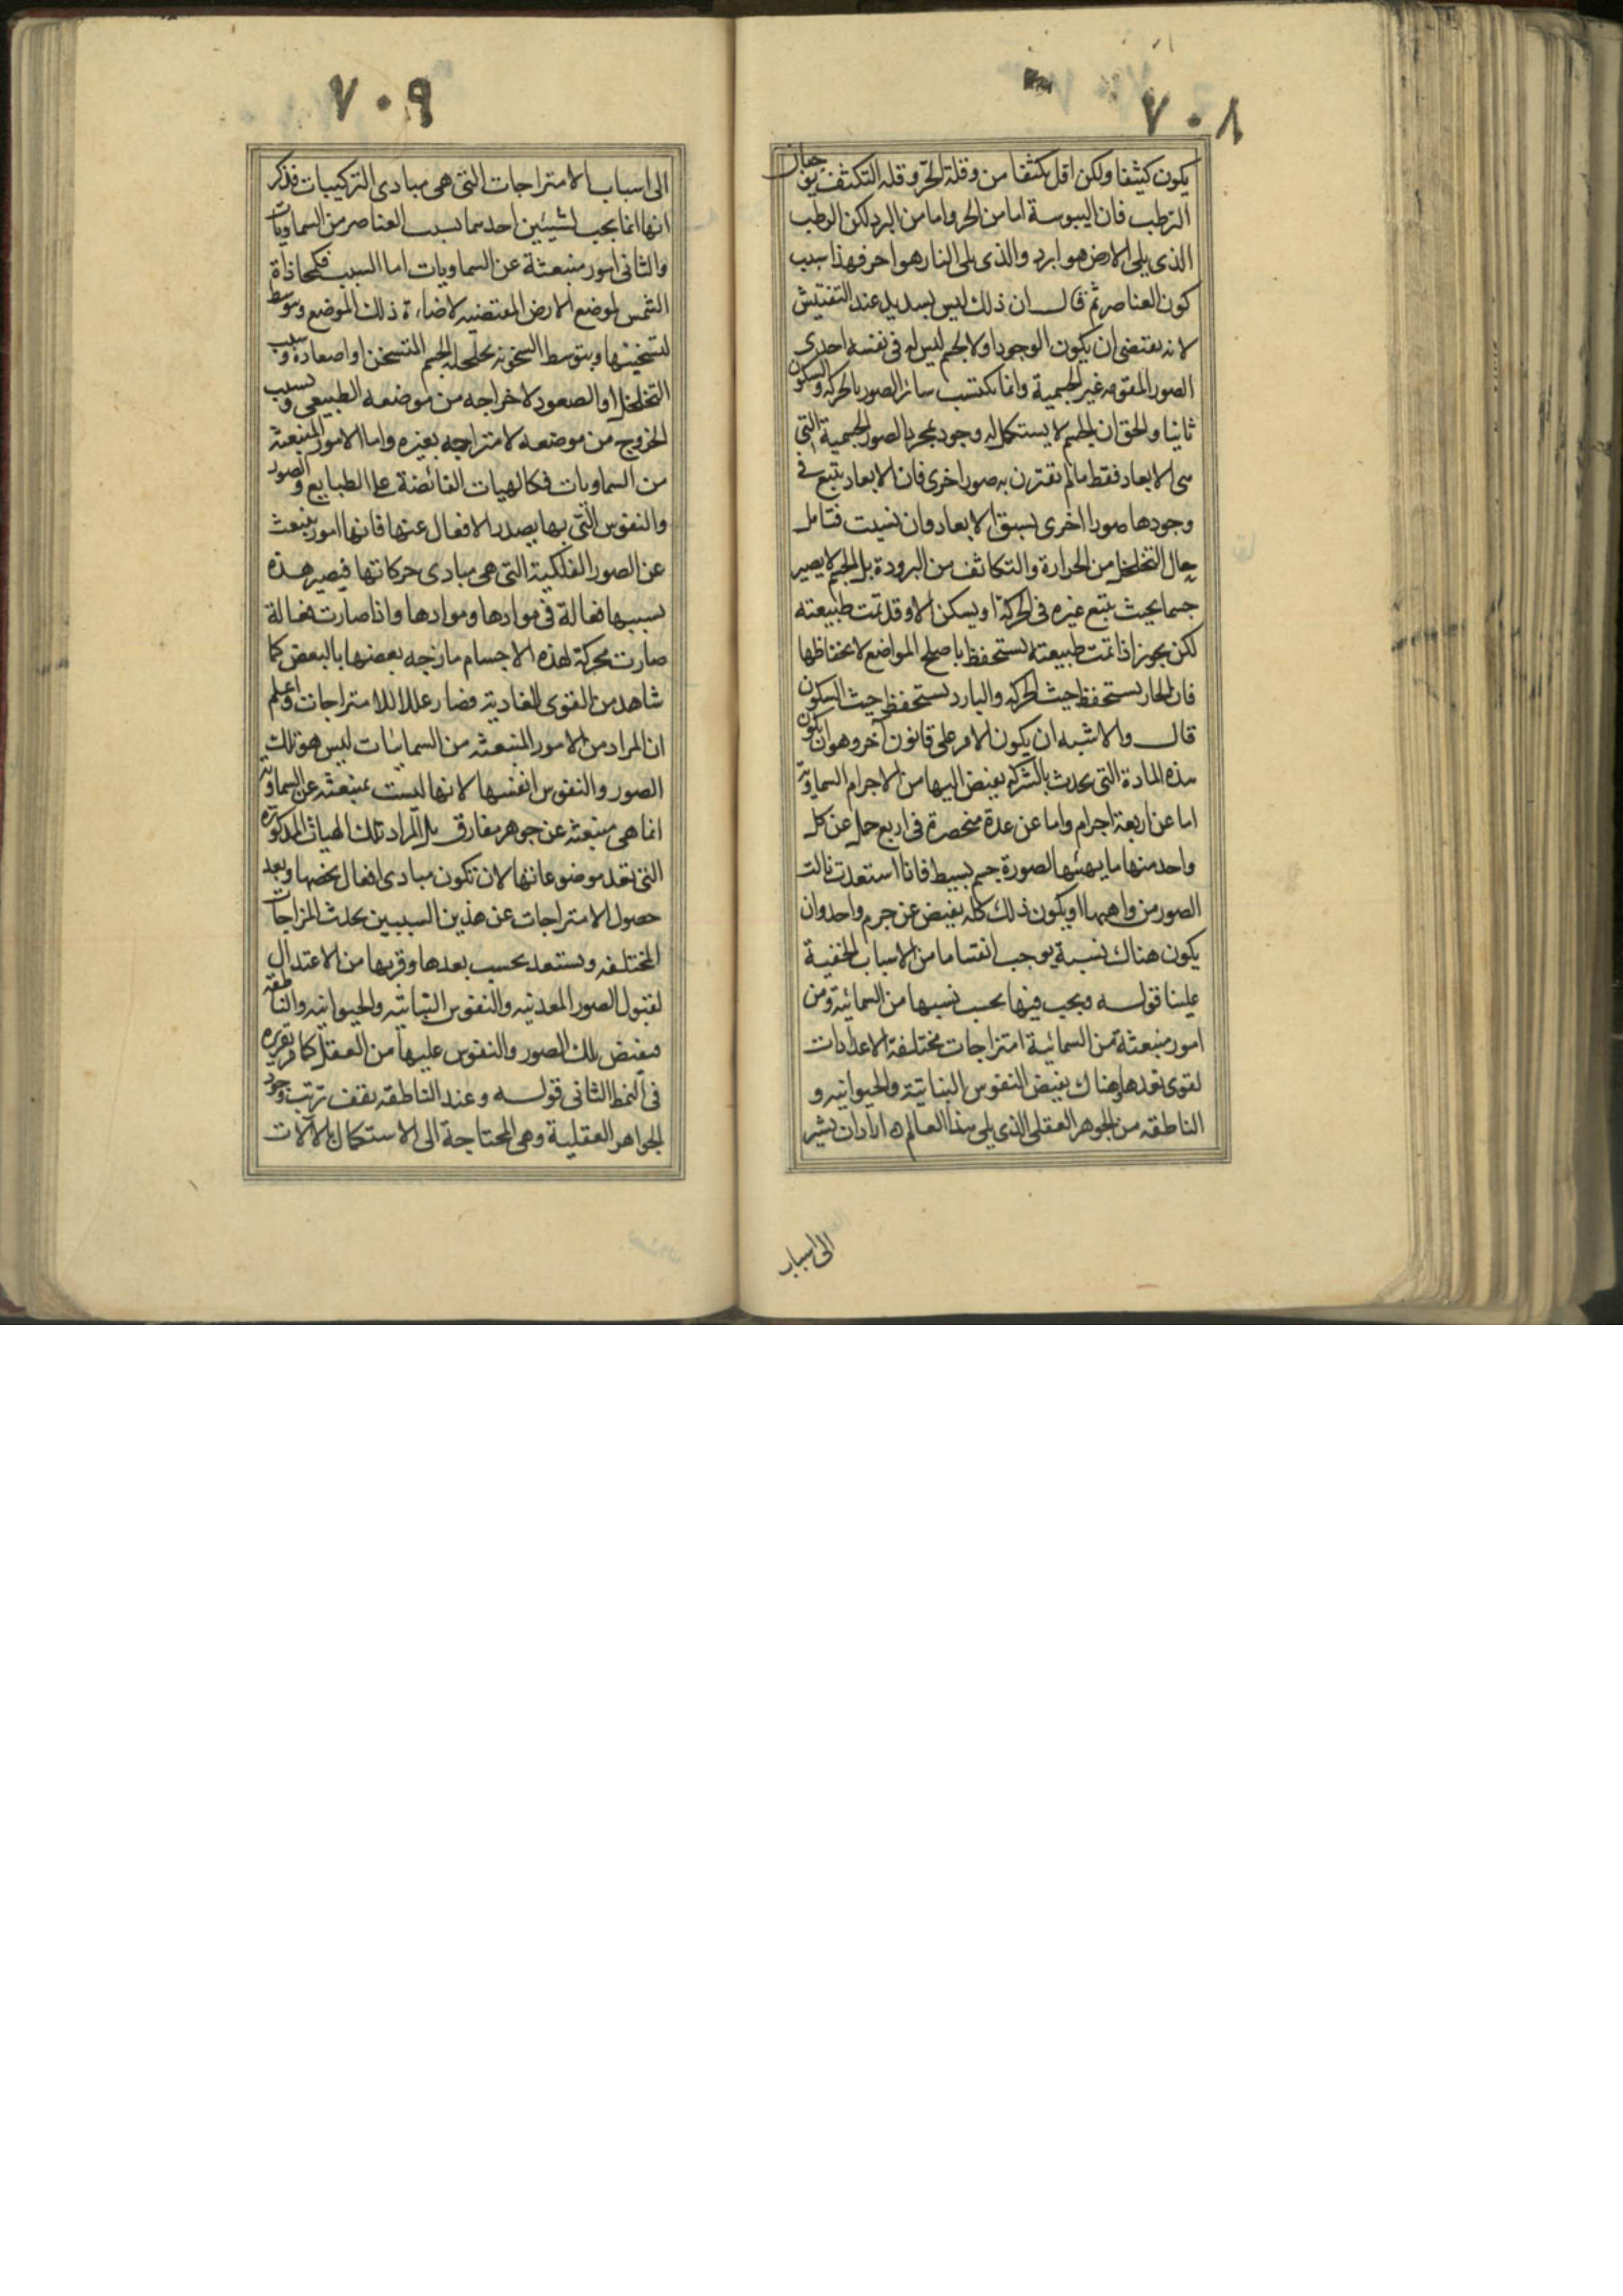 ٧٠٨
يكون كثيفا ولكن اقل تكثفا من وقلة الحر وقله التكثف يوجبان
الترطب فان اليبوسة اما من الحر واما من البرد لكن الرطب
الذى يلى الارض هو ابرد والذى يلى النار هو احر فهذا سبب
كون العناصر ثم قال ان ذلك ليس بسديد عند التفتيش
لانه يقتضى ان يكون الوجود اولا لجسم ليس له فى نفسه احدى
الصور المقومه غير الجسمية وانما يكتسب سائر الصور بالحركه والسكون
ثانيا والحق ان الجسم لا يستكمل له وجود بمجرد الصور الجسمية التى
هى الابعاد فقط مالم تقترن به صور اخرى فان الابعاد يتبع فى
وجودها صورا اخرى يسبق الابعاد وان شيت فتامل
حال التخلخل من الحرارة والتكاثف من البرودة بل الجسم لا يصير
جسما بحيث يتبع غيره فى الحركة او يسكن الا وقد تمت طبيعته
لكن يجوز اذا تمت طبيعته يستحفظ باصلح المواضع لاعتفاظها
فان الحار يستحفظ حيث الحركه والبارد يستحفظ حيث السكون
قال والاشبه ان يكون الامر على قانون آخر وهو ان يكون
هذه المادة التى يحدث بالشركه يفيض اليها من الاجرام السماويه
اما عن اربعة اجرام واما عن عدة منحصرة فى اربع جمل عن كل
واحد منها ما يهيئها لصورة جسم بسيط فاذا استعدت نالت
الصور من واهبها او يكون ذلك كله يفيض عن جرم واحد وان
يكون هناك نسبة يوجب انقساما من الاسباب الخفية
علينا قوله ويجب فيها بحسب نسبها من السمائية ومن
امور منبعثة من السمائية امتزاجات مختلفة الاعدادات
لقوى تعدها وهناك يفيض النفوس النباتية والحيوانيه و
الناطقه من الجوهر العقلى الذى يلى هذا العالم ه اراد ان يشير
الى اسباب
٧٠٩
الى اسباب الامتزاجات التى هى مبادى التركيبات فذكر
انها انما يجب لشيئين احدهما بسبب العناصر من السماويات
والثانى امور منبعثة عن السماويات اما السبب فكمحاذاة
الشمس لموضع الارض المقتضيه لاضاءة ذلك الموضع وبتوسط
لتسخينها وبتوسط السخونه تخلخله الجسم المتسخن او اصعاده وبسبب
التخلخل او الصعود لاخراجه من موضعه الطبيعى وبسبب
الخروج من موضعه لامتزاجه بغيره واما الامور المنبعثة
من السماويات فكالهيات الفائضة على الطبايع والصور
والنفوس التى بها يصدر الافعال عنها فانها امور ينبعث
عن الصور الفلكية التى هى مبادى حركاتها فيصير هذه
بسببها فعالة فى موادها وموادها واذا صارت فعالة
صارت محركة لهذه الاجسام مازجه بعضها بالبعض كما
شاهد من القوى الغاديه فصار عللا للامتزاجات واعلم
ان المراد من الامور المنبعثه من السمائيات ليس هو تلك
الصور والنفوس انفسها لانها ليست بمنبعثه عن السماويه
انما هى منبعثه عن جوهر مفارق بل المراد تلك الهيات المذكوره
التى تعد موضوعاتها لان تكون مبادى افعال يخصها وبعد
حصول الامتزاجات عن هذين السببين يحدث المزاجات
المختلفه ويستعد بحسب بعدها وقربها من الاعتدال
لقبول الصور المعدنيه والنفوس النباتيه والحيوانيه والناطقه
فيفيض تلك الصور والنفوس عليها من العقل كما مر تقريره
فى النمط الثانى قوله وعند الناطقه يقف ترتب وجود
الجواهر العقلية وهى المحتاجة الى الاستكمال بالآلات